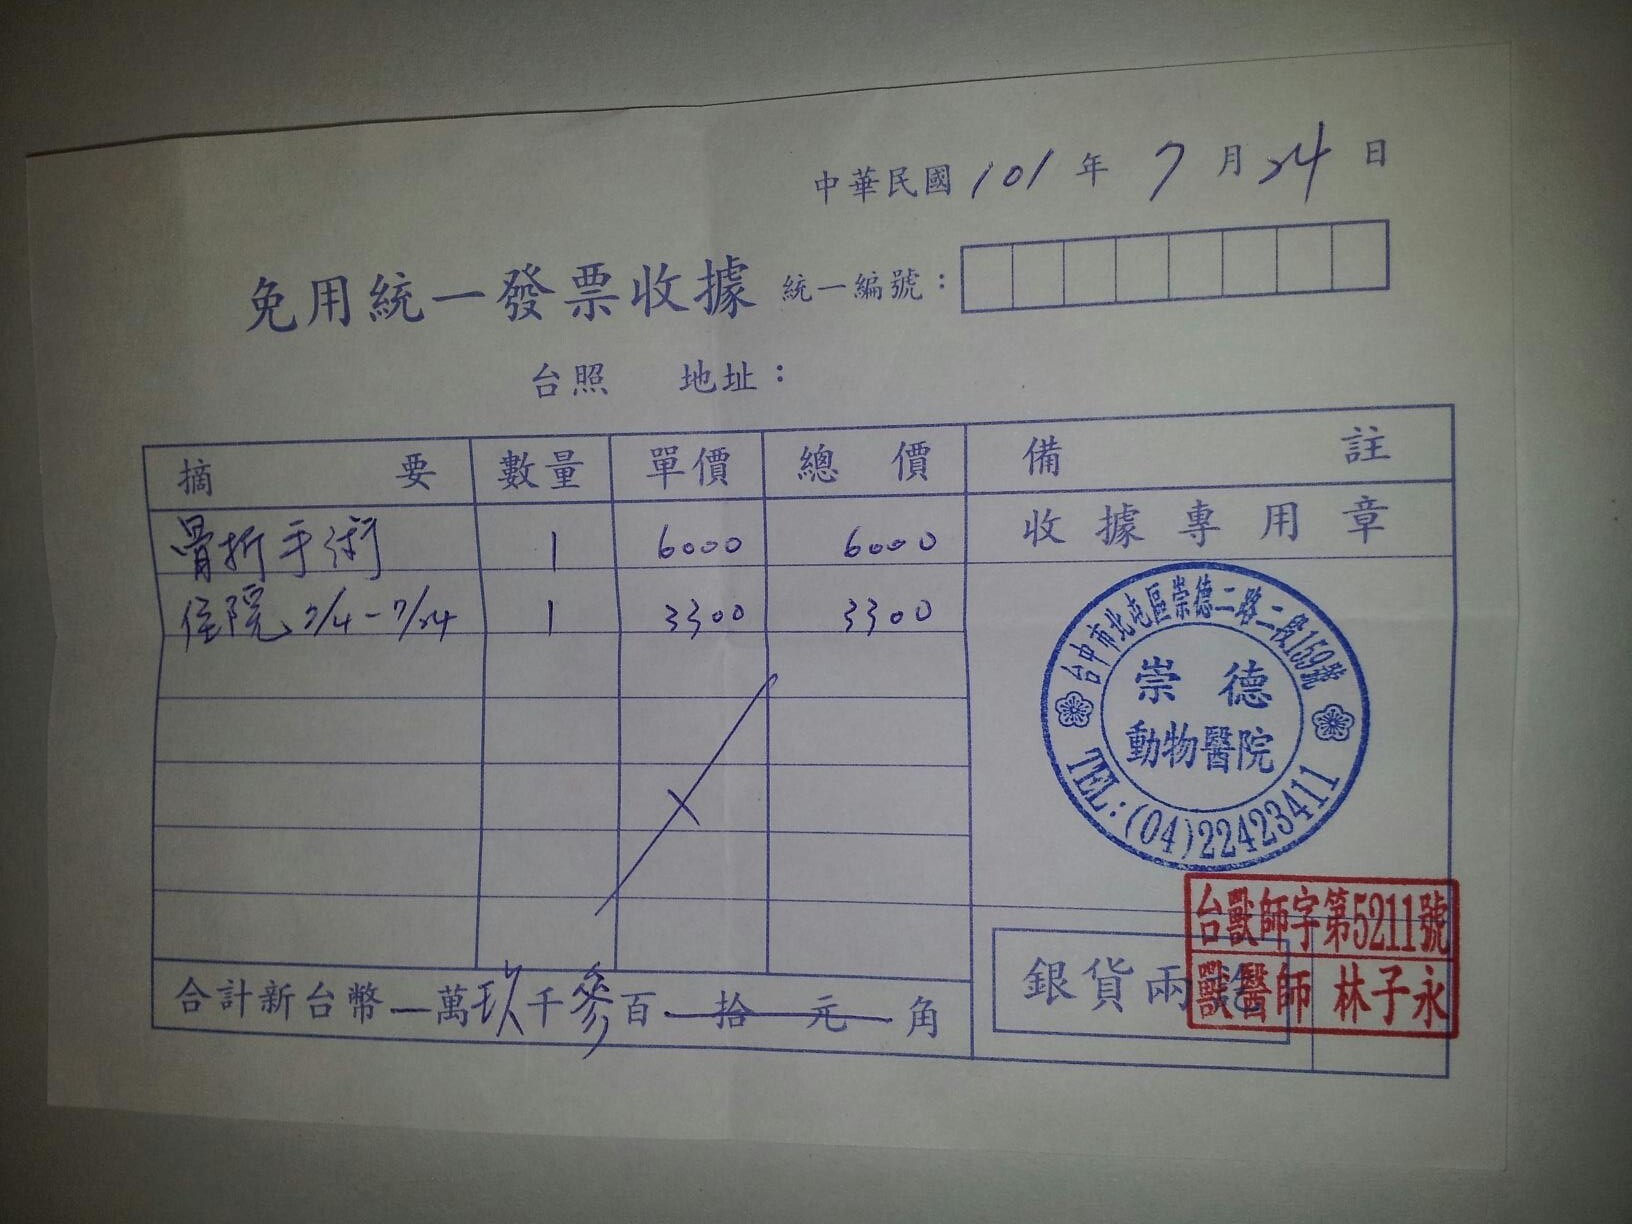 中華民國101年7月24日
免用統一發票收據 統一編號：
台照 地址：
摘要 數量 單價 總價 備註
收據專用章
骨折手術 1 6000 6000
住院 7/4-7/24 1 3300 3300
台中市北屯區崇德二路二段159號
崇德
動物醫院
TEL:(04)22423411
台獸師字第5211號
獸醫師 林子永
銀貨兩
合計新台幣—萬玖千參百—拾—元—角